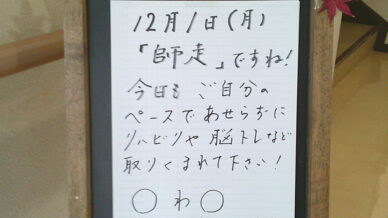 12月1日(月)
「師走」ですね!
今日も ご自分の
ペースであせらずに
リハビリや脳トレなど
取りくまれて下さい!
○わ○